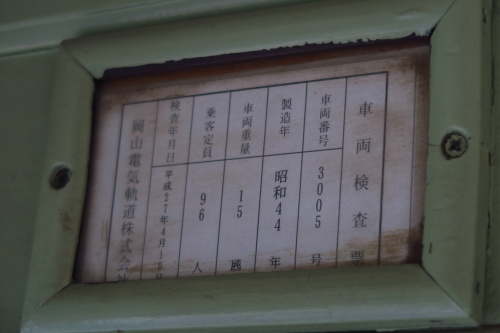 車両検査票
車両番号 3005号
製造年 昭和44年
車両重量 15瓲
乗客定員 96人
検査年月日 平成27年4月10日
岡山電気軌道株式会